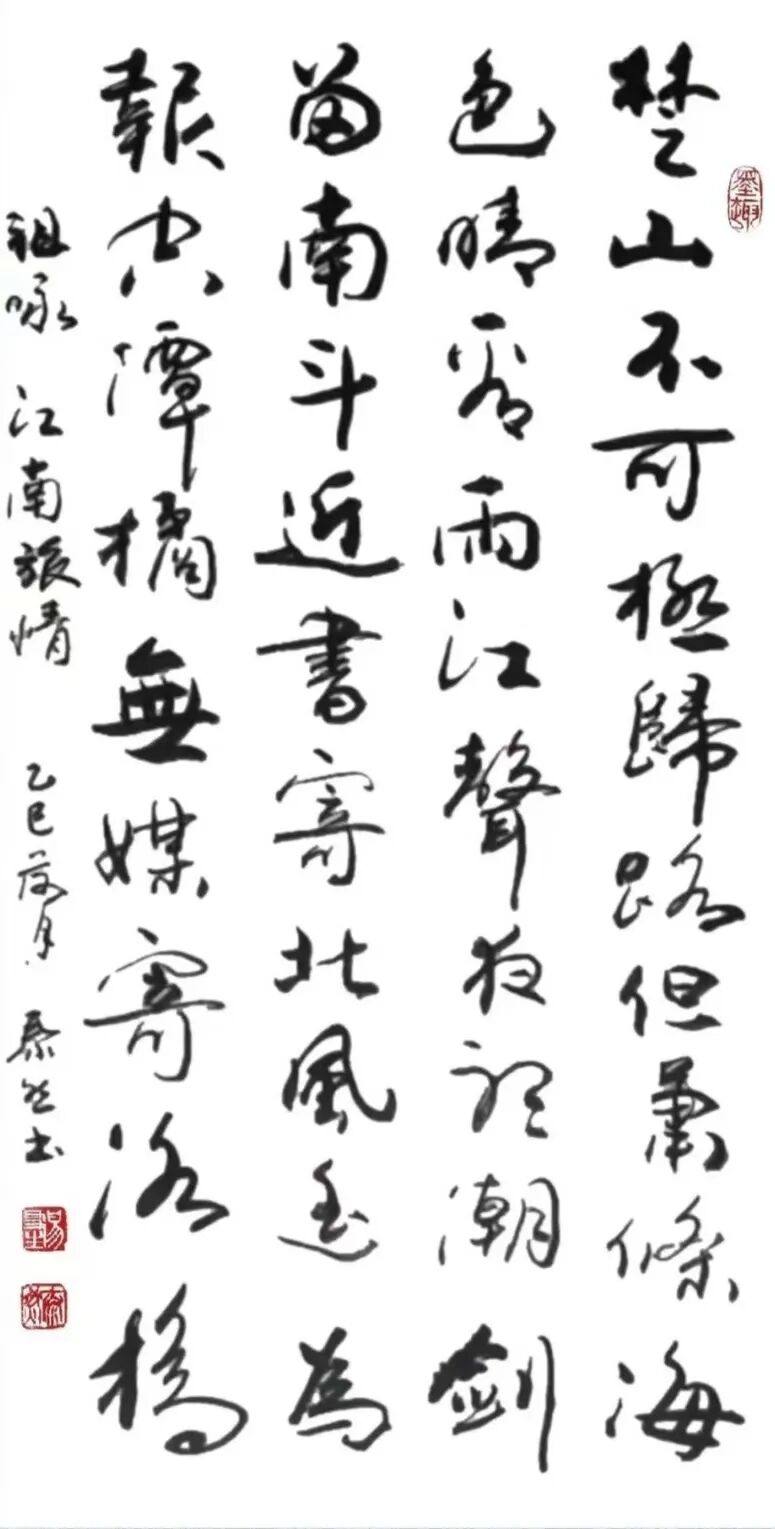 墨趣
楚山不可極歸路但蕭條海
色晴看雨江聲夜聽潮劍
留南斗近書寄北風遙為
報空潭橘無媒寄洛橋
祖咏 江南旅情 乙巳 月 泰然书